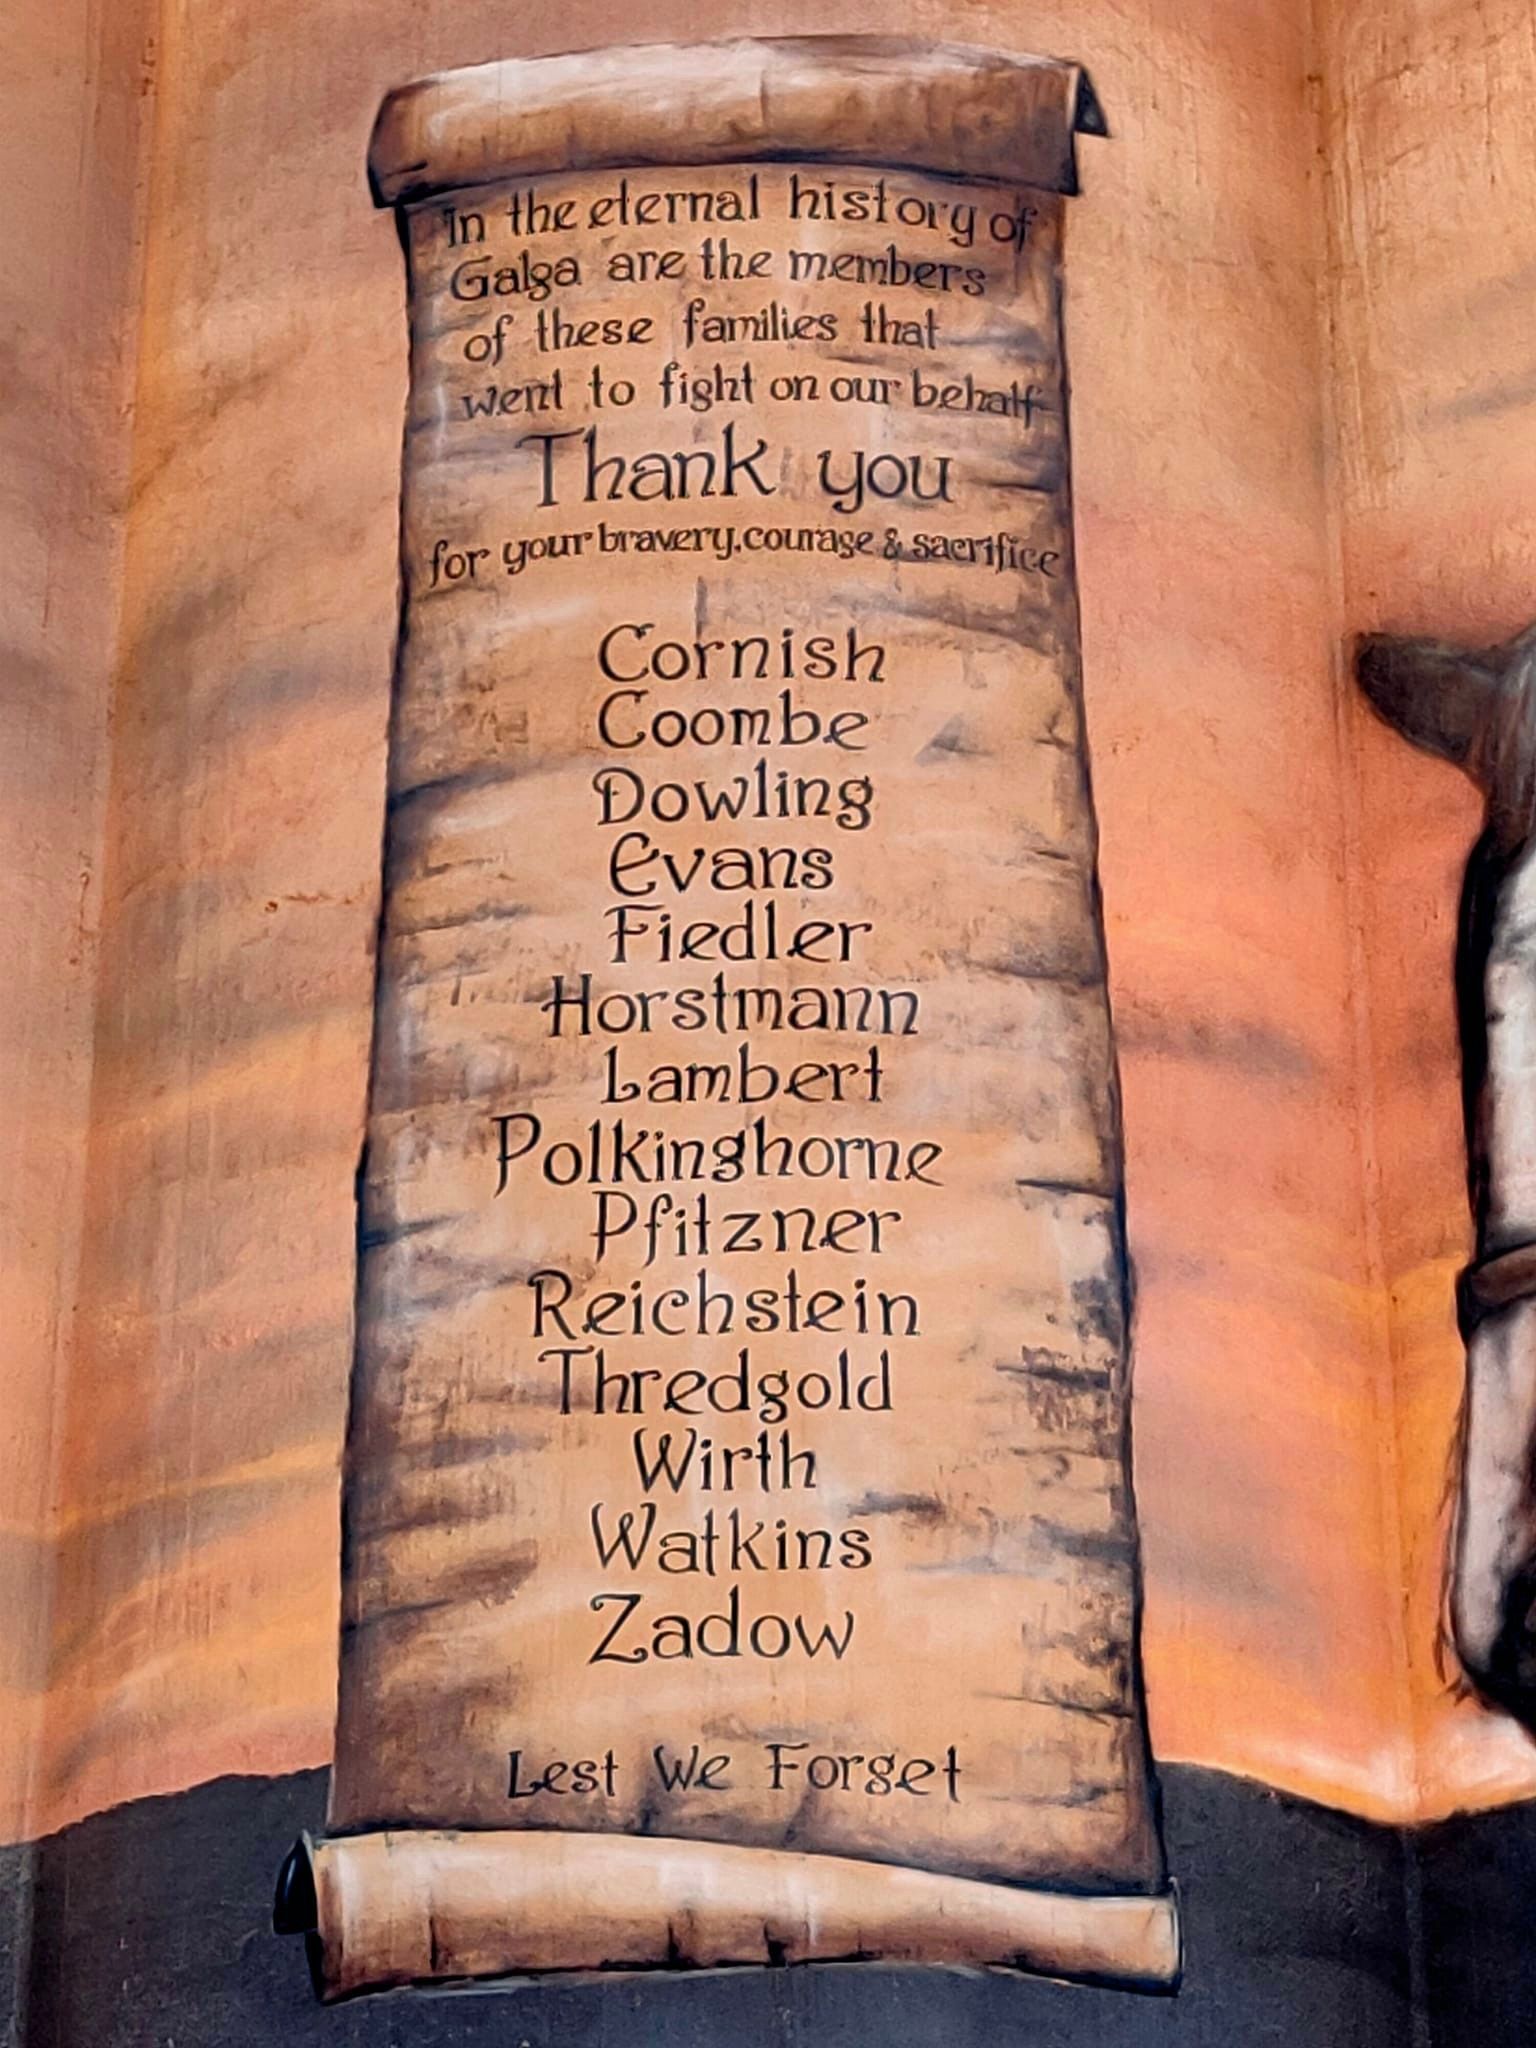 In the eternal history of
Galga are the members
of these families that
went to fight on our behalf
Thank you
for your bravery, courage & sacrifice
Cornish
Coombe
Dowling
Evans
Fiedler
Horstmann
Lambert
Polkinghorne
Pfitzner
Reichstein
Thredgold
Wirth
Watkins
Zadow
Lest We Forget